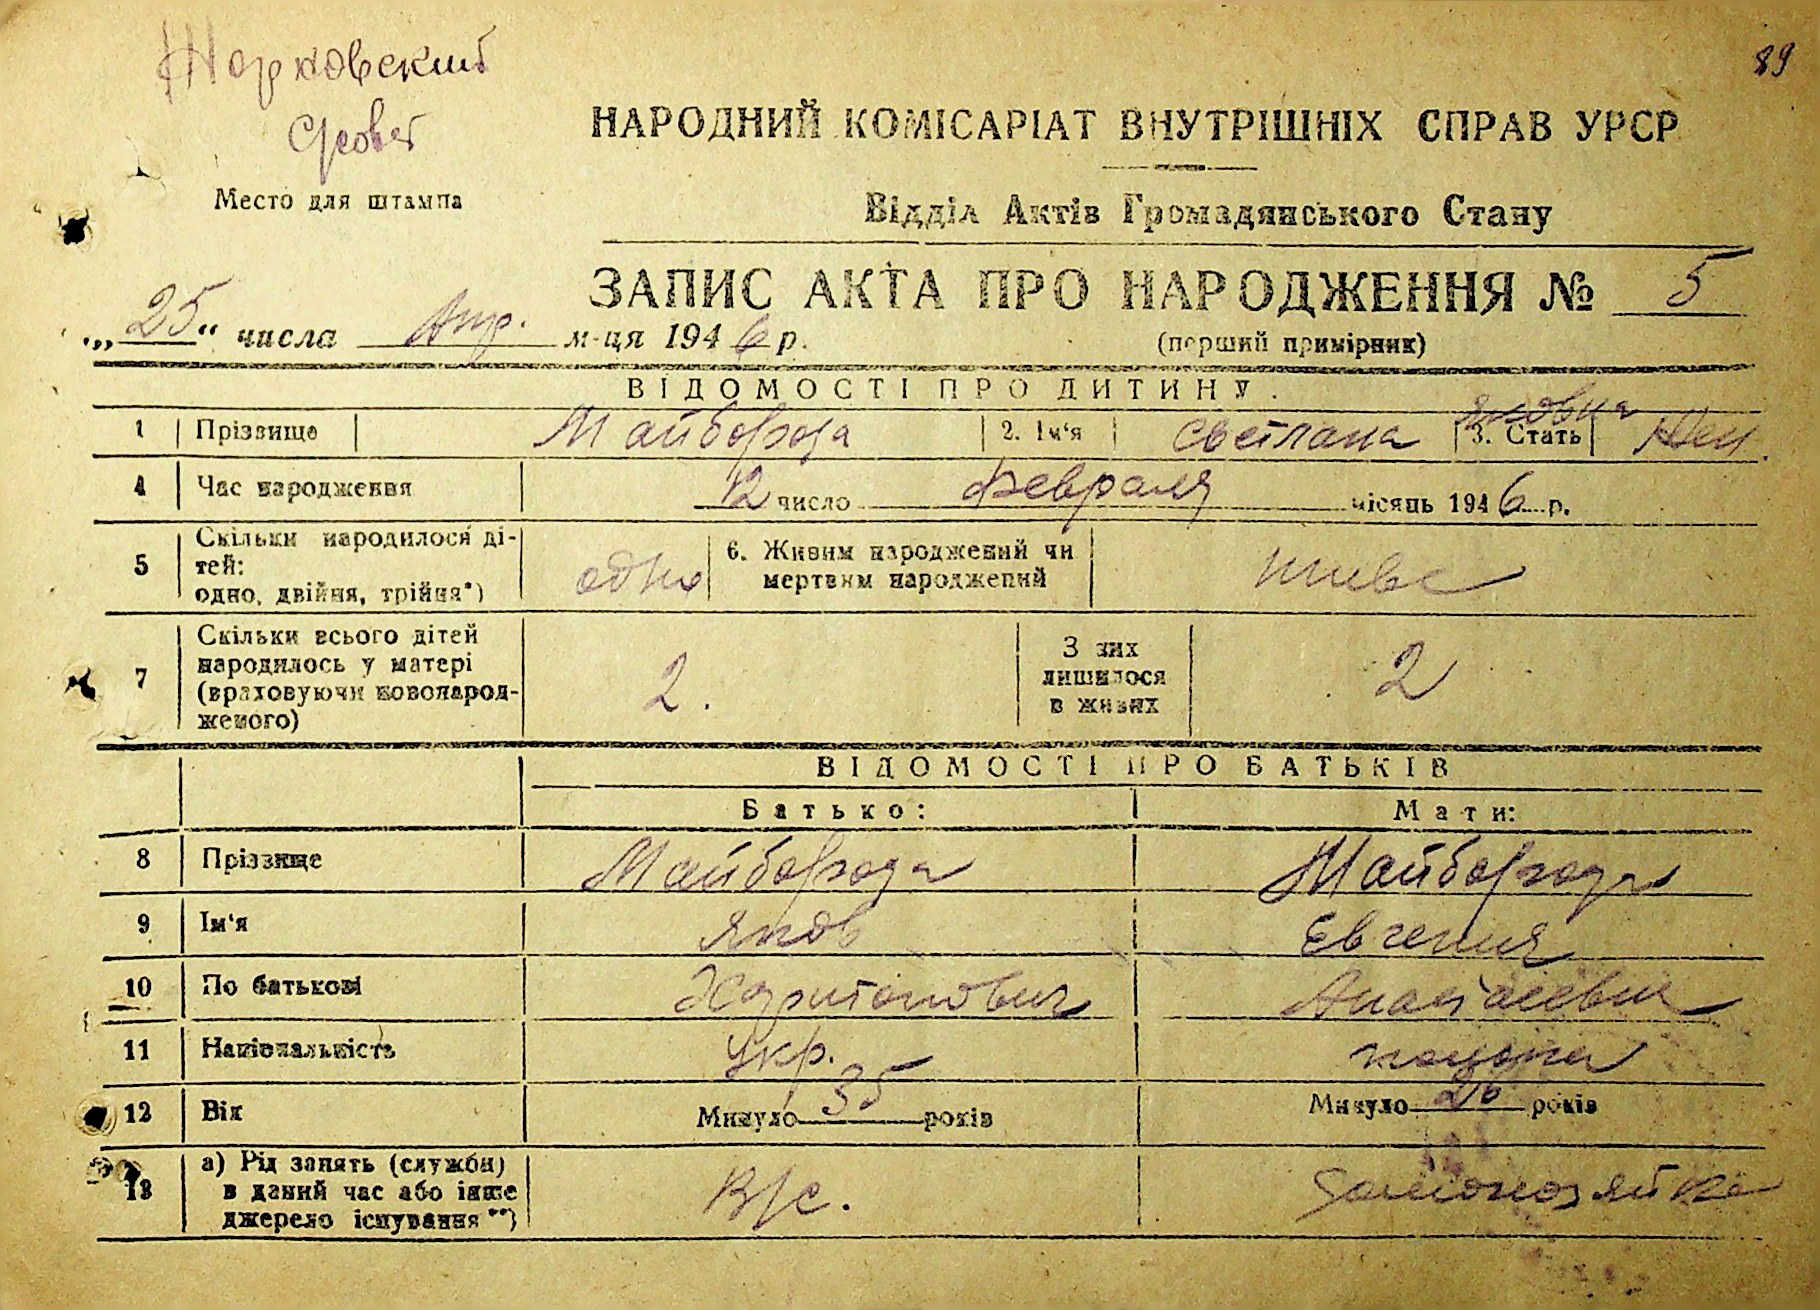 89
с/совет
НАРОДНИЙ КОМІСАРІАТ ВНУТРІШНІХ СПРАВ УРСР
Место для штампа
Відділ Актів Громадянського Стану
ЗАПИС АКТА ПРО НАРОДЖЕННЯ № 5
„25“ числа Апр. м-ця 1946 р. (перший примірник)
ВІДОМОСТІ ПРО ДИТИНУ.
1 Прізвище Майборода 2. Ім'я Светлана Яковна 3. Стать Жен.
4 Час народження 12 число февраля місяць 1946 р.
5 Скільки народилося ді-
тей:
одно, двійня, трійня*)
одно
6. Живим народжений чи
мертвим народжений
живе
7 Скільки всього дітей
народилось у матері
(враховуючи новонарод-
женого)
2.
З них
лишилося
в живих
2
ВІДОМОСТІ ПРО БАТЬКІВ
Батько: Мати:
8 Прізвище Майборода Майборода
9 Ім'я Яков Евгения
10 По батькові Харитонович Анастасьевна
11 Національність Укр.
12 Вік Минуло 35 років Минуло 26 років
13 а) Рід занять (служби)
в даний час або інше
джерело існування**)
В/с. Домохозяйка